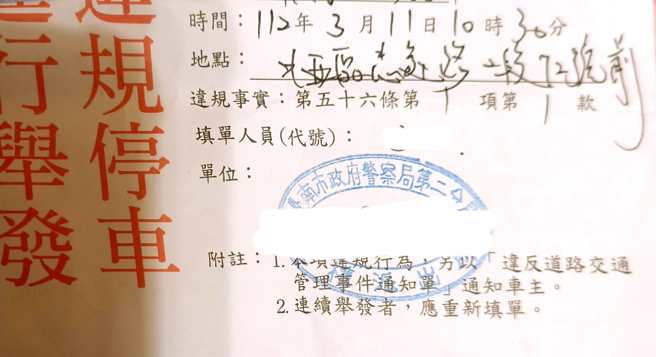 違規停車
逕行舉發
時間：112年3月11日10時30分
地點：中西區 路二段72號前
違規事實：第五十六條第1項第1款
填單人員(代號)：
單位：
臺南市政府警察局第二分局
附註：1.本項違規行為，另以「違反道路交通
管理事件通知單」通知車主。
2.連續舉發者，應重新填單。